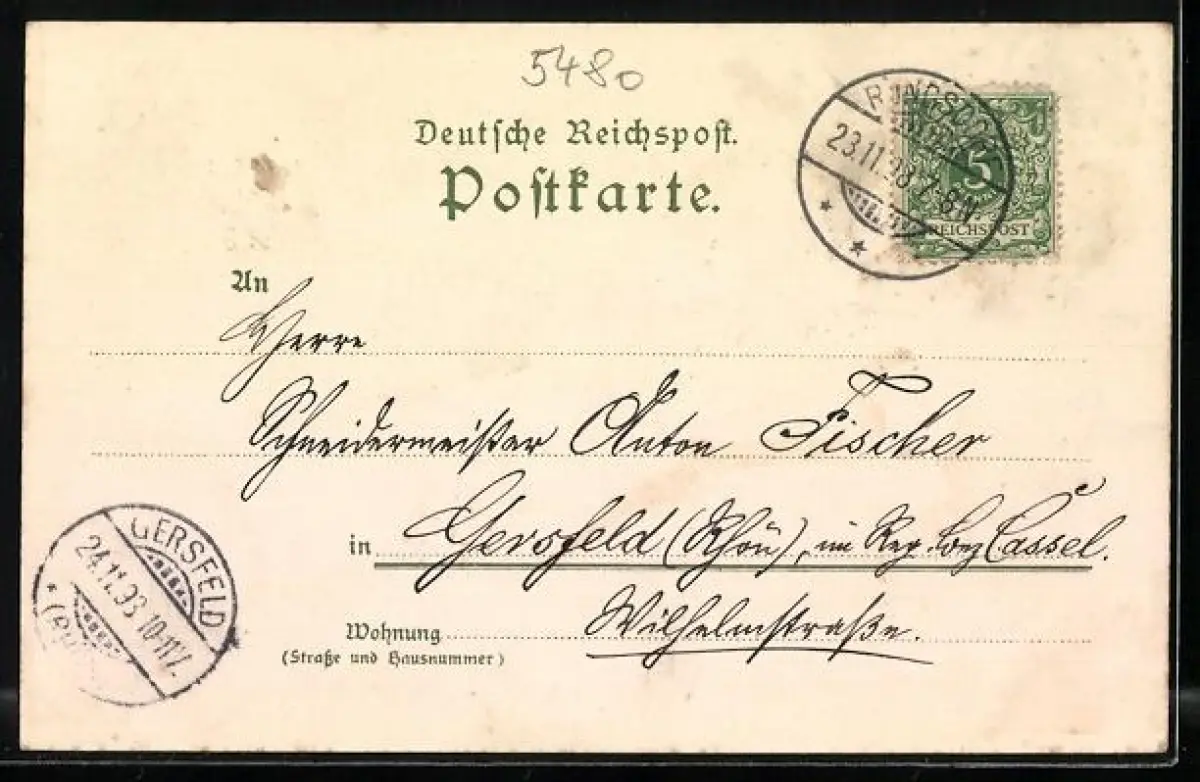 5480
Deutsche Reichspost.
Postkarte.
23.11.98 7-8N
5
REICHSPOST
An
Herrn
Schneidermeister Anton Fischer
in Gersfeld (Rhön), im Reg. Bez. Cassel.
Wohnung Wilhelmstraße.
(Straße und Hausnummer)
GERSFELD
24.11.98 10-11V.